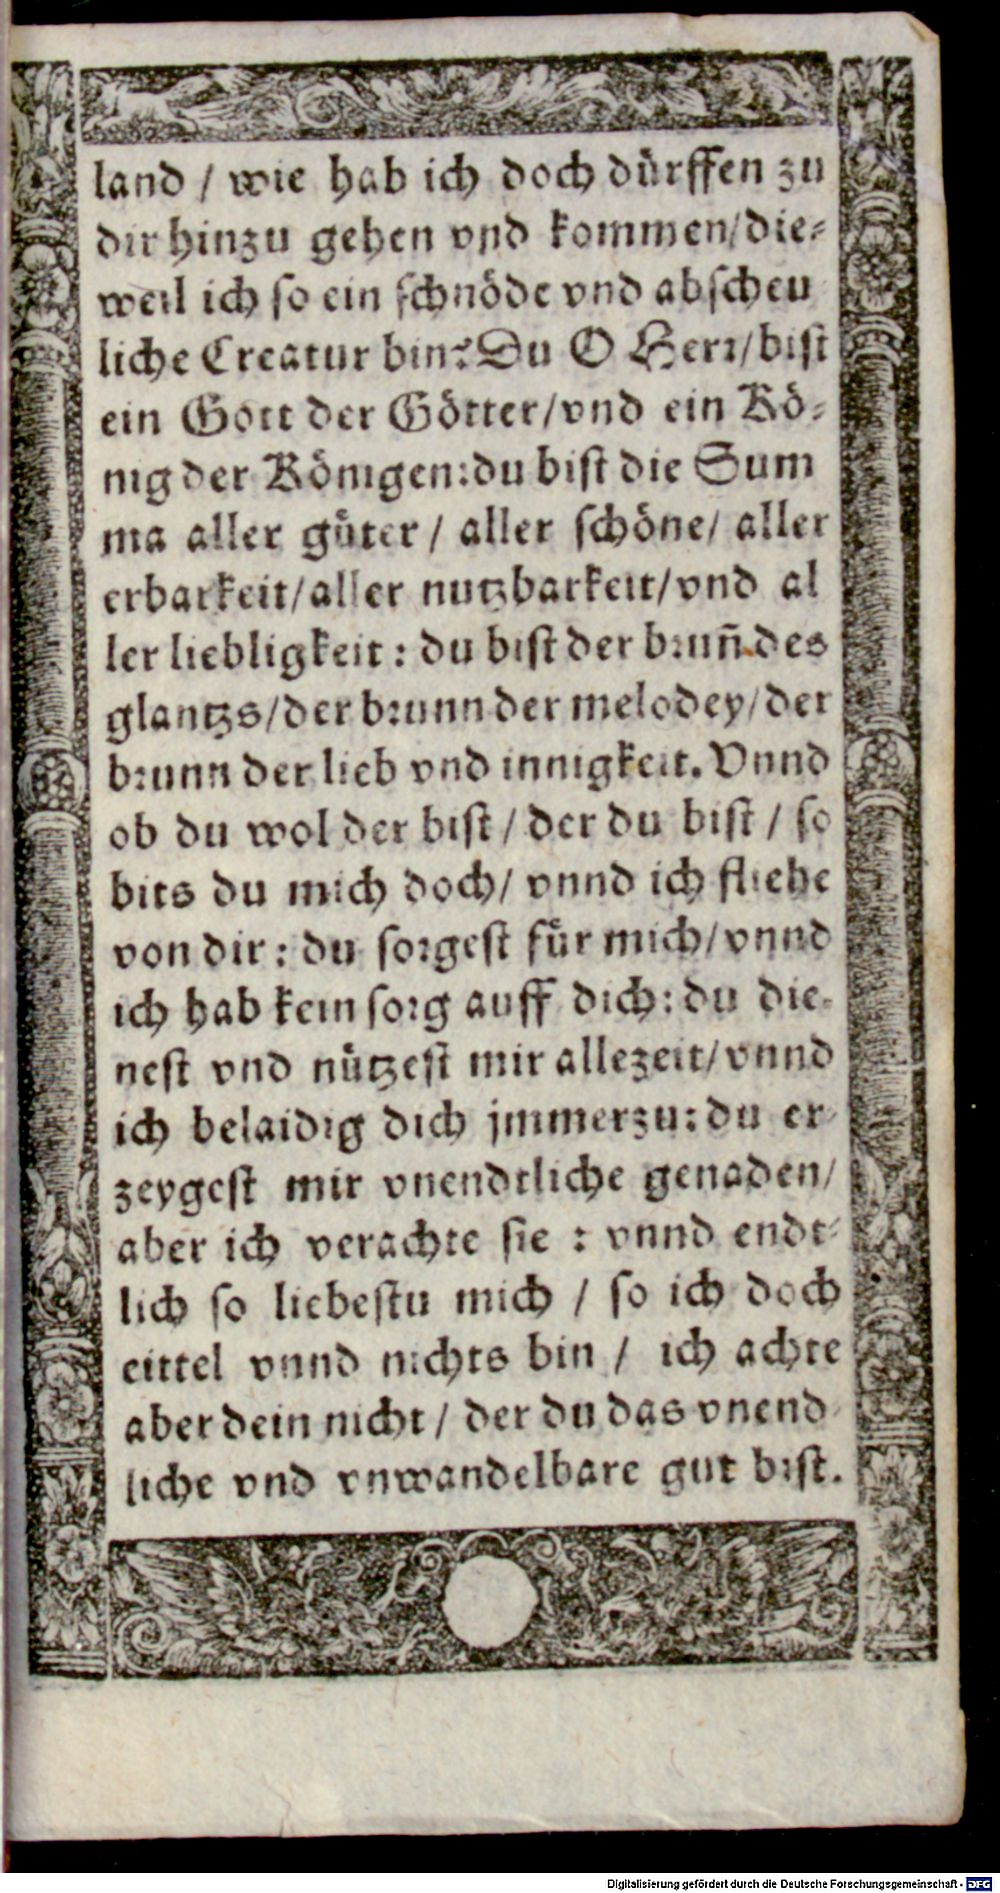 land / wie hab ich doch dürffen zu
dir hinzu gehen vnd kommen/die⸗
weil ich so ein schnöde vnd abscheu
liche Creatur bin? Du O Herr/bist
ein Gott der Götter/vnd ein Kö⸗
nig der Königen:du bist die Sum
ma aller güter / aller schöne/ aller
erbarkeit/aller nutzbarkeit/vnd al
ler liebligkeit : du bist der bruñ des
glantzs/der brunn der melodey/der
brunn der lieb vnd innigkeit. Vnnd
ob du wol der bist / der du bist / so
bits du mich doch/ vnnd ich fliehe
von dir : du sorgest für mich/vnnd
ich hab kein sorg auff dich: du die⸗
nest vnd nützest mir allezeit/vnnd
ich belaidig dich jmmerzu: du er⸗
zeygest mir vnendtliche genaden/
aber ich verachte sie : vnnd endt⸗
lich so liebestu mich / so ich doch
eittel vnnd nichts bin / ich achte
aber dein nicht / der du das vnend⸗
liche vnd vnwandelbare gut bist.
Digitalisierung gefördert durch die Deutsche Forschungsgemeinschaft - DFG